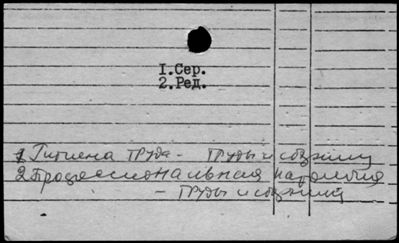 I.Сер.
2.Ред.
1 Гигиена труда - труды и сборники
2 Профессиональная патология
- труды и сборники